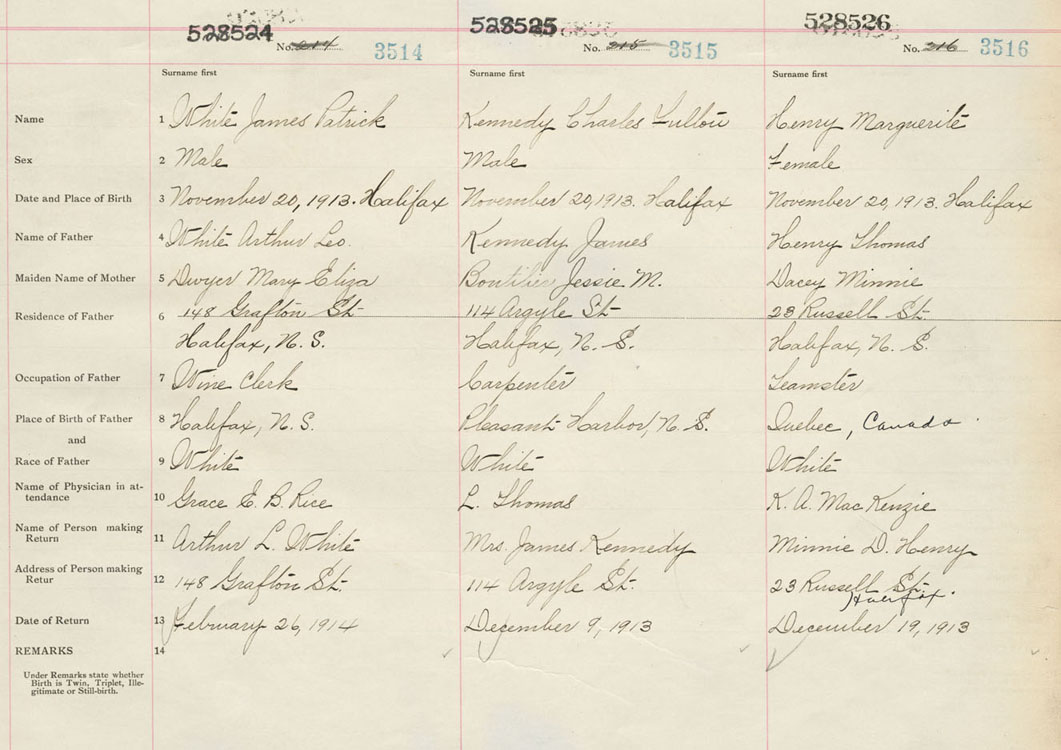 528524 528525 528526
No. 214 3514 No. 215 3515 No. 216 3516
Surname first Surname first Surname first
Name 1 White James Patrick Kennedy Charles Henry Marguerite
Sex 2 Male Male Female
Date and Place of Birth 3 November 20, 1913. Halifax November 20, 1913. Halifax November 20, 1913. Halifax
Name of Father 4 White Arthur Leo. Kennedy James Henry Thomas
Maiden Name of Mother 5 Dwyer Mary Eliza Boutilier Jessie M. Dacey Minnie
Residence of Father 6 148 Grafton St. 114 Argyle St 23 Russell St.
Halifax, N. S. Halifax, N. S. Halifax, N. S.
Occupation of Father 7 Wine Clerk Carpenter Teamster
Place of Birth of Father 8 Halifax, N. S. Pleasant Harbor, N. S. Quebec, Canada
and
Race of Father 9 White White White
Name of Physician in at-
tendance 10 Grace E. B. Rice L. Thomas K. A. MacKenzie
Name of Person making
Return 11 Arthur L. White Mrs. James Kennedy Minnie D. Henry
Address of Person making
Retur 12 148 Grafton St. 114 Argyle St. 23 Russell St.
Halifax.
Date of Return 13 February 26, 1914 December 9, 1913 December 19, 1913
REMARKS 14
Under Remarks state whether
Birth is Twin, Triplet, Ille-
gitimate or Still-birth.